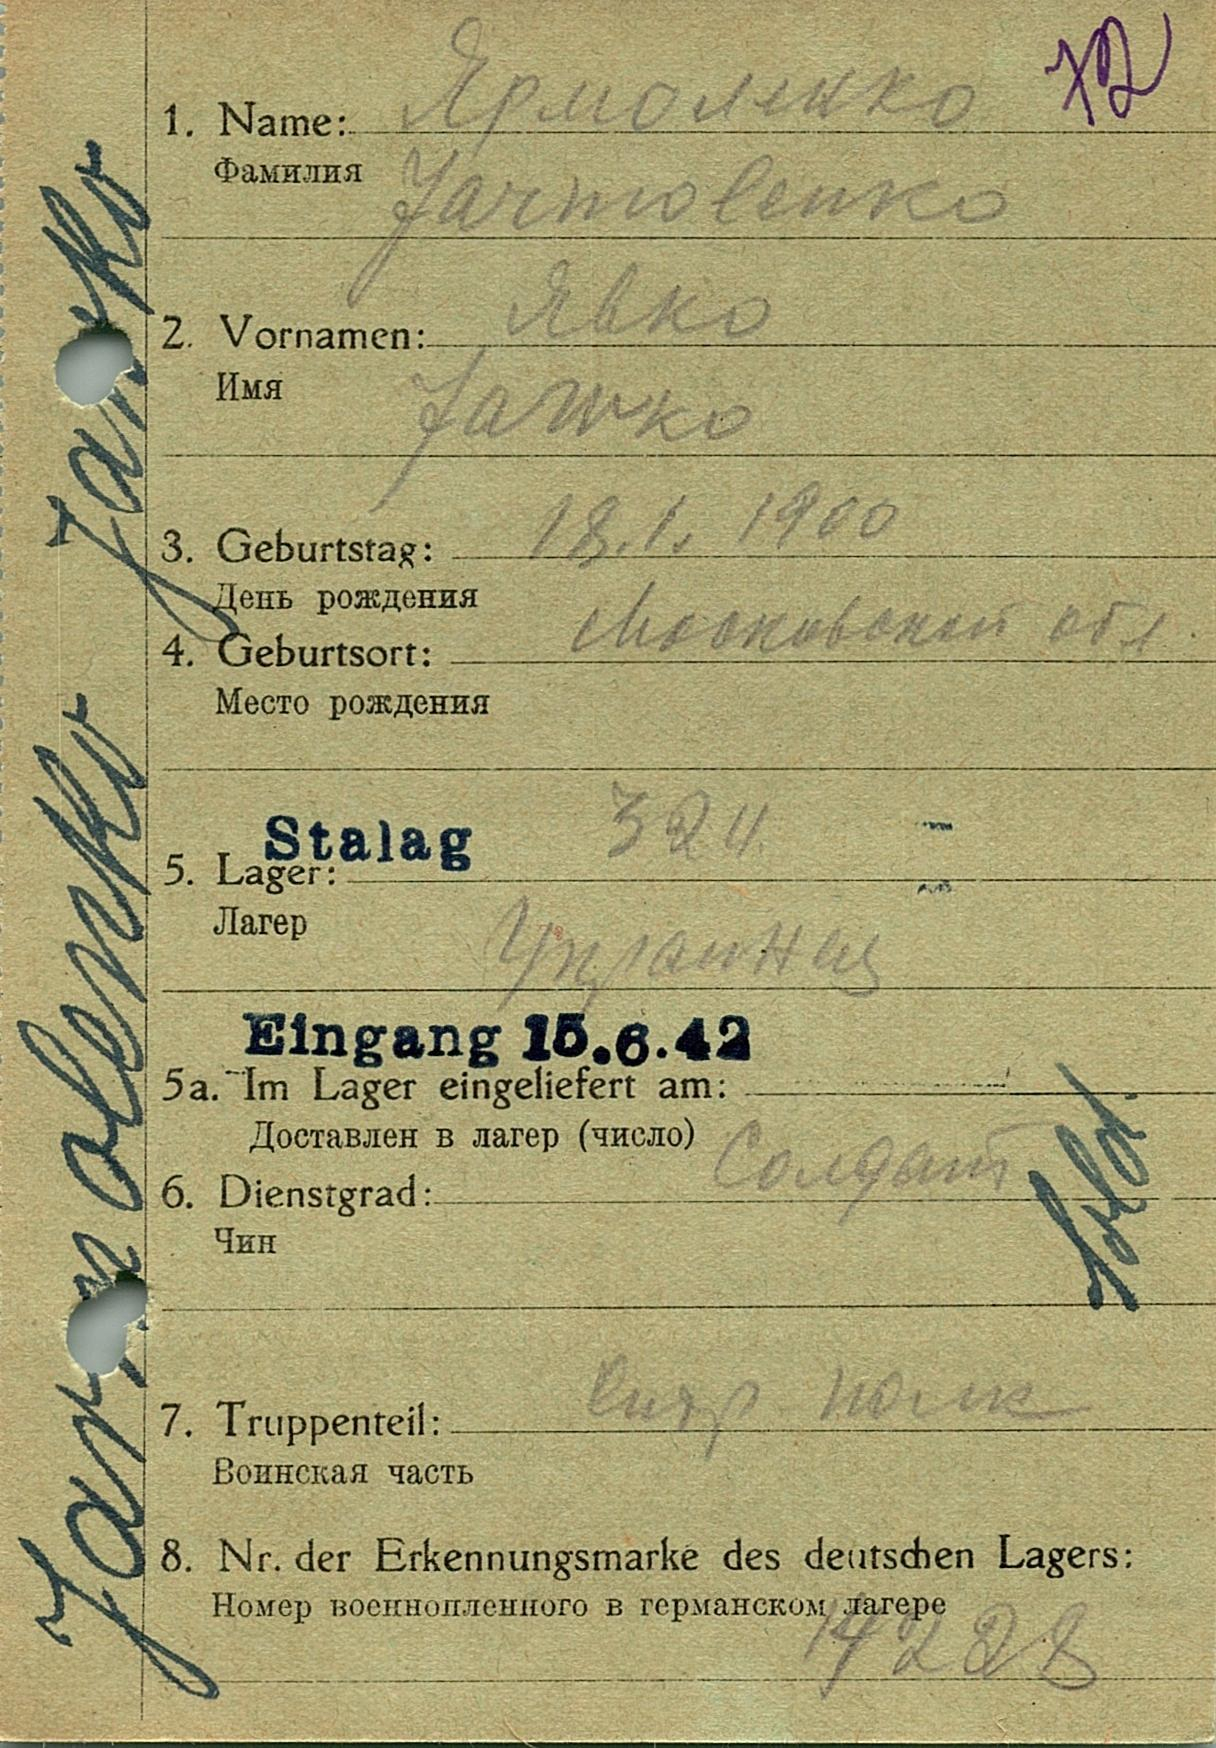 72
Ярмоленко
1. Name:
Фамилия
Jarmolenko
Явко
2. Vornamen:
Имя
Jawko
3. Geburtstag: 18.1.1900
День рождения
Московской обл.
4. Geburtsort:
Место рождения
Stalag 324.
5. Lager:
Лагер
Украинец
Eingang 15.6.42
5a. Im Lager eingeliefert am:
Доставлен в лагер (число)
Солдат
6. Dienstgrad:
Чин
Sold.
полк
7. Truppenteil:
Воинская часть
8. Nr. der Erkennungsmarke des deutschen Lagers:
Номер военнопленного в германском лагере
14228
Jarmolenko Jawko